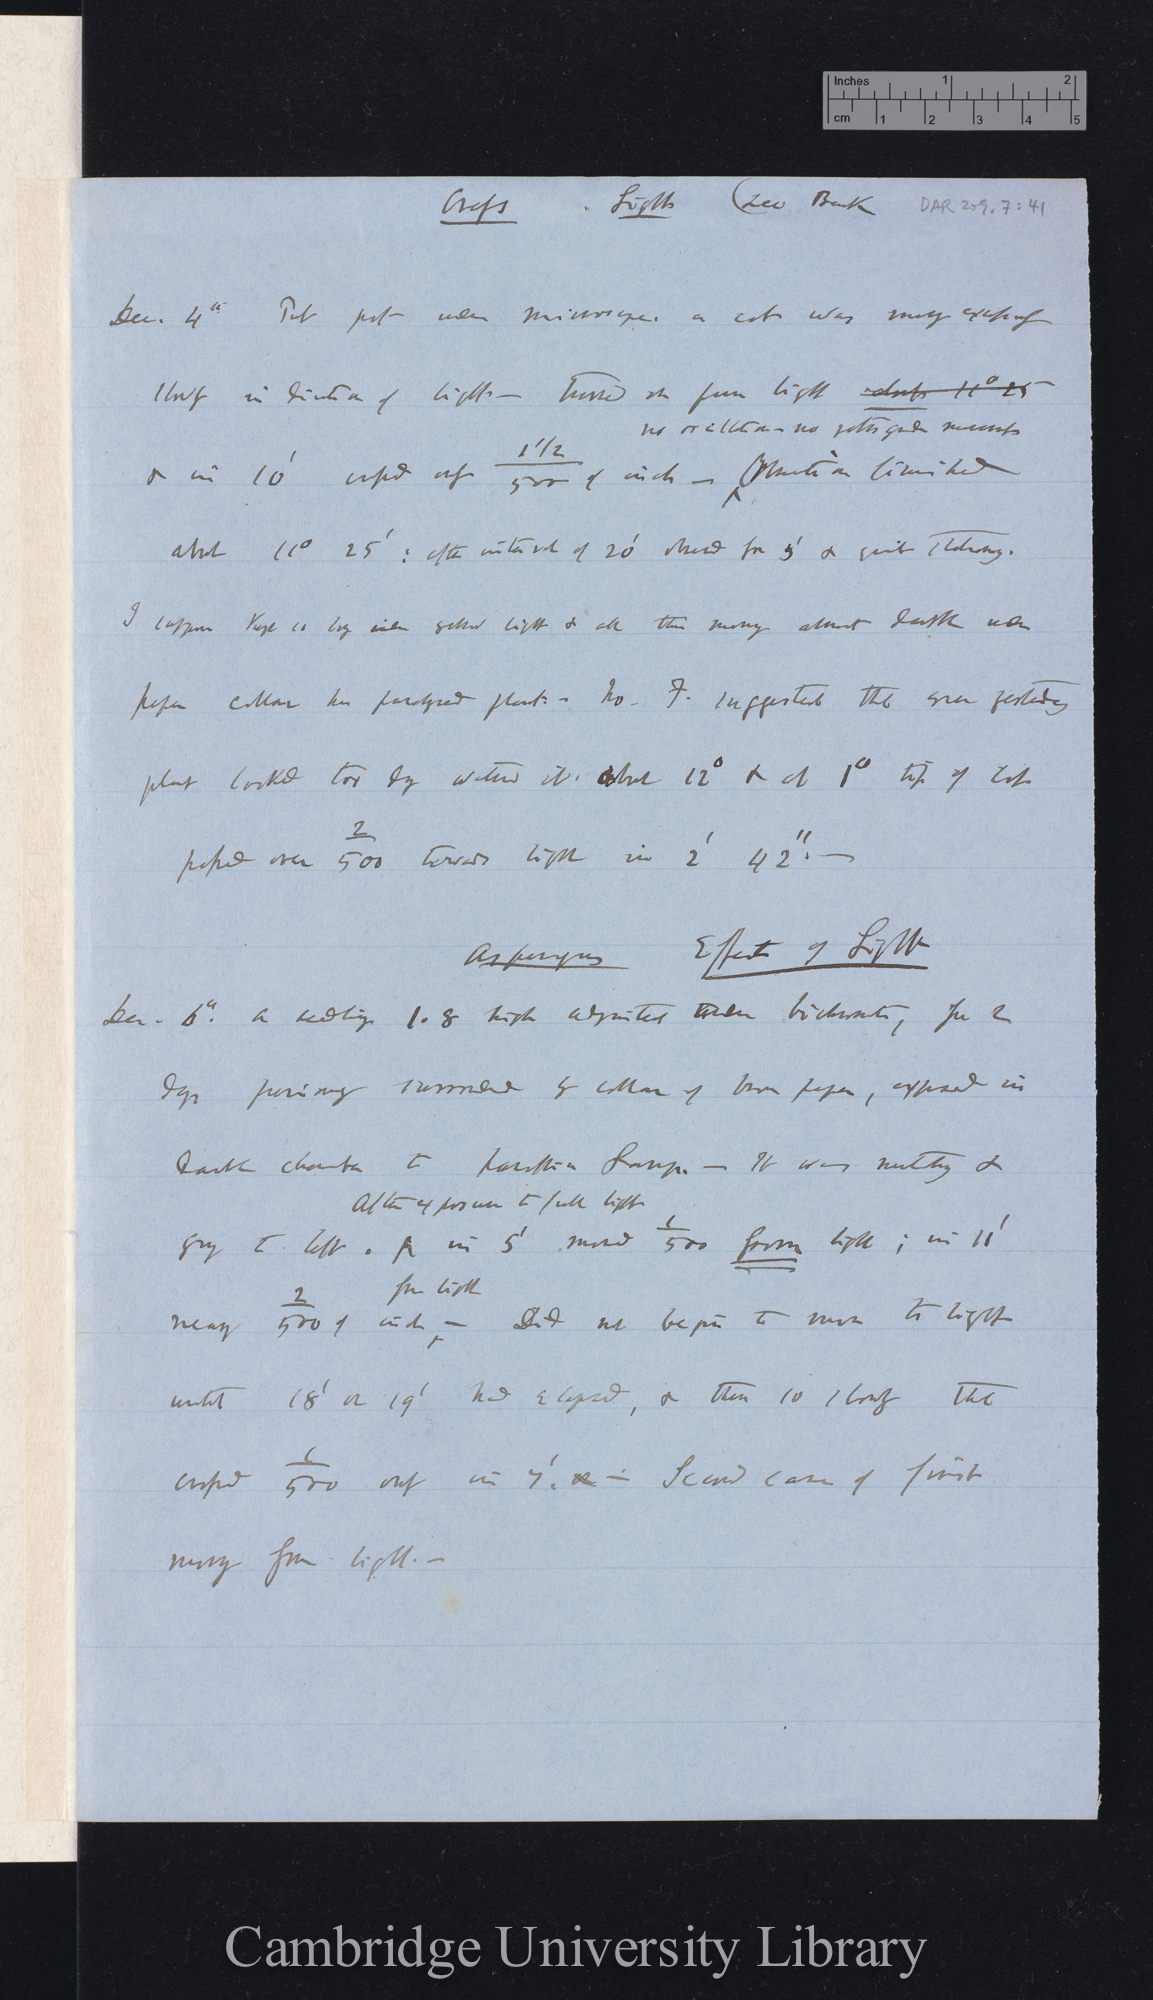 Inches 1 2
cm 1 2 3 4 5
Light (see Back DAR 209.7:41
Dec. 4th Put pot under microscope. a cot. was moving
slowly in direction of light — Turned it from light
no oscillations no movements
& in 10' only 1 1/2/500 of inch — Observation
about 11° 25'; after interval of 20' observed for 5' & quite stationary.
I suppose kept so long under light & all this morning almost dark under
paper collar has paralysed plant. — No. F. suggested that even yesterday
plant looked too dry watered it. about 12° & at 1° tip of cot.
passed over 2/500 towards light in 2' 42''. —
Asparagus Effects of Light
Dec. 6th. a seedling 1.8 high adjusted under for 2
days previously surrounded by collar of brown paper, exposed in
dark chamber to paraffin Lamp. — It was nutating &
After exposure to full light
going to left. in 5' moved 1/500 from light; in 11'
from light
nearly 2/500 of inch — Did not begin to move to light
until 18' or 19' had elapsed, & then so slowly that
crossed 1/500 only in 7'. — Second case of first
moving from light. —
Cambridge University Library